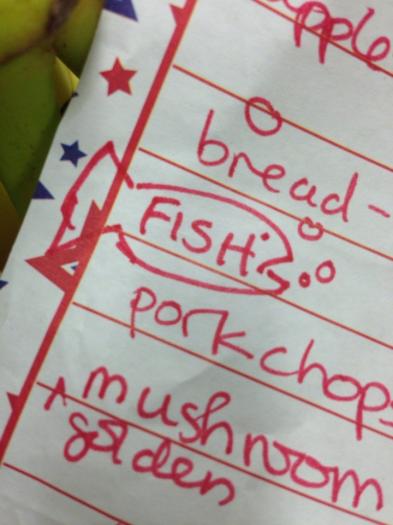 apple
bread-
FISH
pork chops
^mushroom
golden